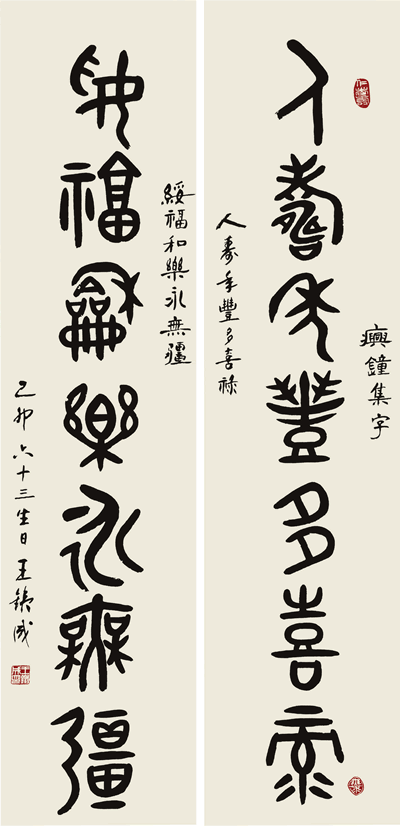 𤼈鐘集字
人壽年豐多喜彔
人壽年豐多喜祿
綏福和樂永無疆
妥福龢樂永無彊
己卯六十三生日王鐵成